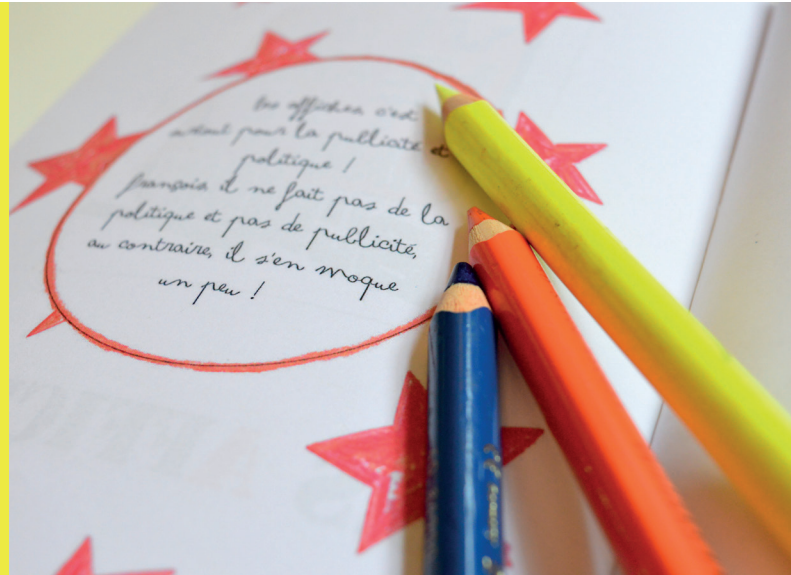 les affiches c'est
surtout pour la publicité et
politique !
François, il ne fait pas de la
politique et pas de publicité,
au contraire, il s'en moque
un peu !